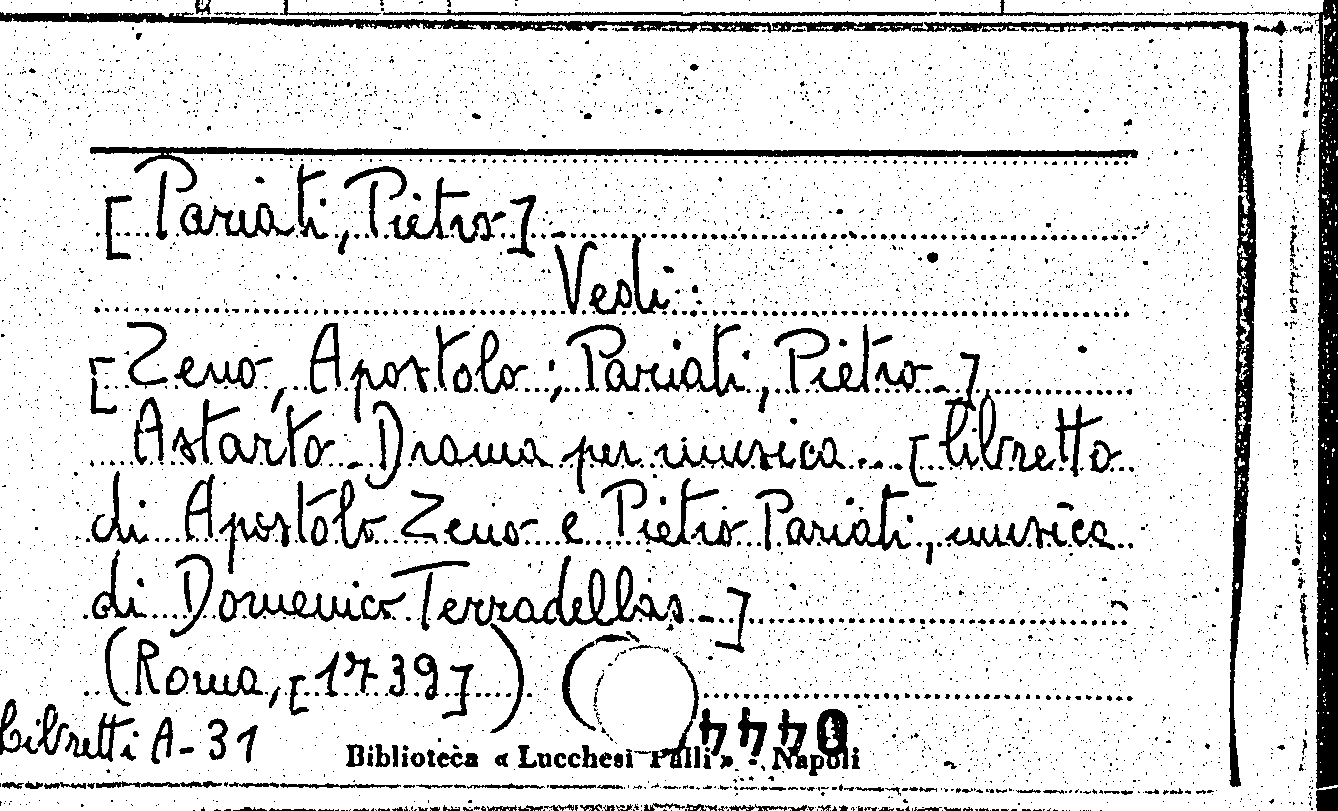 [Pariati, Pietro].
Vedi:
[Zeno, Apostolo; Pariati, Pietro.]
Astarto. Drama per musica... [libretto
di Apostolo Zeno e Pietro Pariati, musica
di Domenico Terradellas.]
(Roma, [1739])
Libretti A-31
Biblioteca « Lucchesi Palli » - Napoli